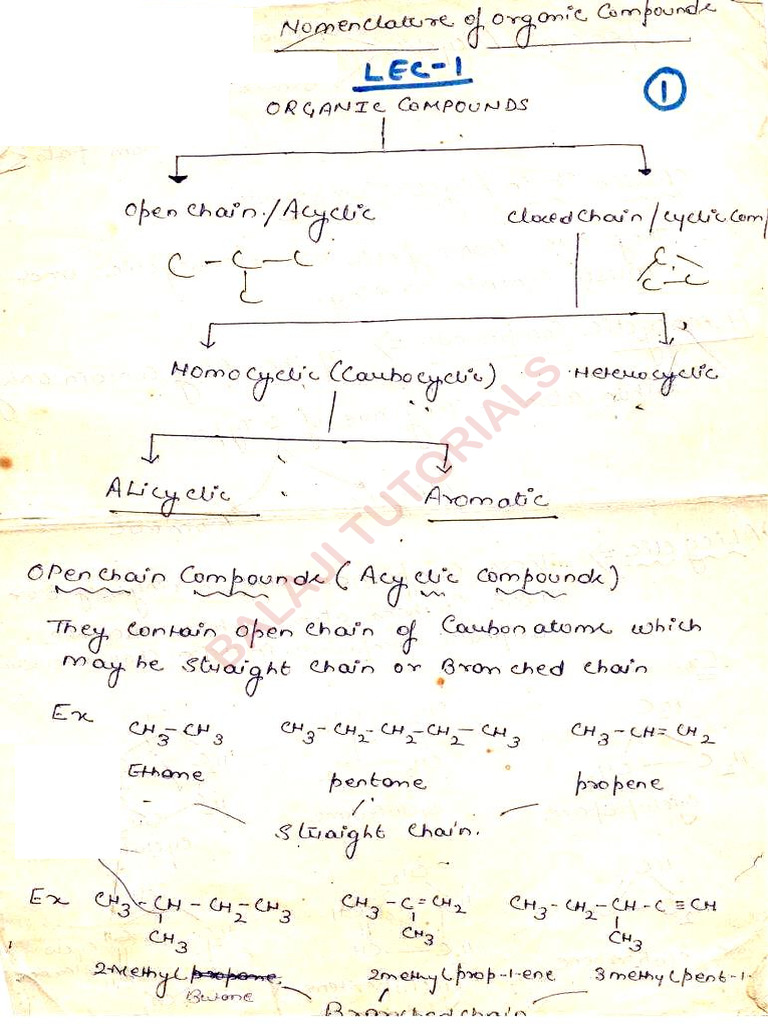 Nomenclature of organic Compounds
LEC-1
1
ORGANIC COMPOUNDS
Open chain./Acyclic
Closed chain / Cyclic Comp
C - C - C
C
C
C - C
Homocyclic (Carbocyclic)
Heterocyclic
ALicyclic
Aromatic
BALAJI TUTORIALS
OPen chain Compounds (Acyclic Compounds)
They contain open chain of Carbon atoms which
may be straight chain or Branched chain
Ex CH3-CH3 CH3-CH2-CH2-CH2-CH3 CH3-CH=CH2
Ethane pentane propene
Straight chain.
Ex CH3-CH-CH2-CH3 CH3-C=CH2 CH3-CH2-CH-C≡CH
CH3 CH3 CH3
2-Methyl propane 2methylprop-1-ene 3methylpent-1-
Butane
Branched chain